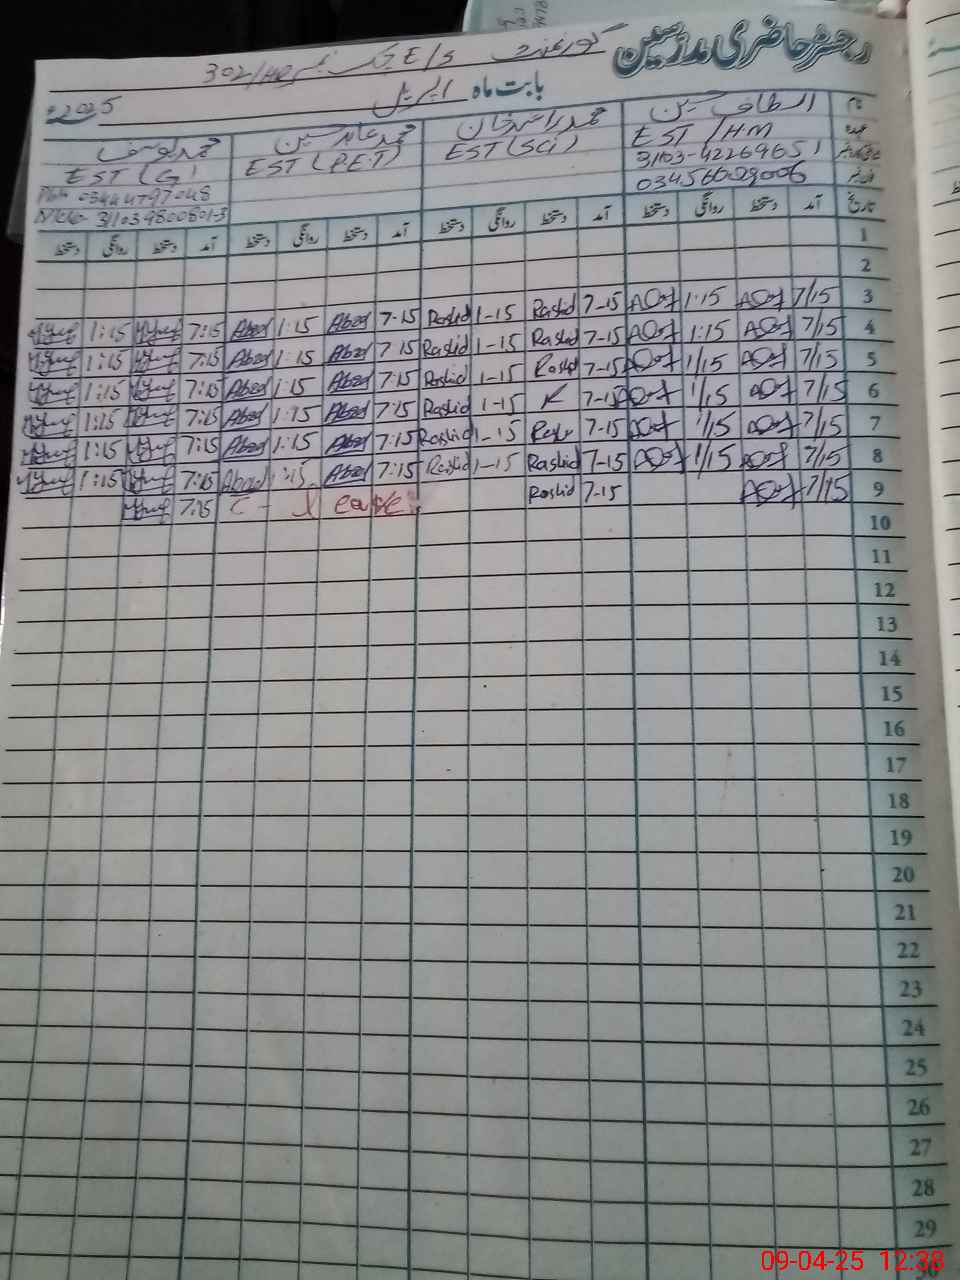 رجسٹر حاضری مدرسین گورنمنٹ E/S چک نمبر 302/HR
بابت ماہ اپریل 2025ء
نام الطاف حسین محمد راشد خان محمد عابد حسین محمد یوسف
عہدہ EST/HM EST(SCi) EST(P.E.T) EST(G)
31103-42269651
03444797048
NIC No 31103 9800801-3
تاریخ آمد دستخط روانگی دستخط آمد دستخط روانگی دستخط آمد دستخط روانگی دستخط آمد دستخط روانگی دستخط
1
2
3 7/15 1:15 7-15 Rashid 1-15 Rashid 7-15 Abed 1:15 Abed 7:15 1:15
4 7/15 1:15 7-15 Rashid 1-15 Rashid 7 15 Abed 1:15 Abed 7:15 1:15
5 7/15 1/15 7-15 Rashid 1-15 Rashid 7:15 Abed 1:15 Abed 7:15 1:15
6 7/15 1/15 7-15 1-15 Rashid 7:15 Abed 1:15 Abed 7:15 1:15
7 7/15 1/15 7-15 1-15 Rashid 7:15 Abed 1:15 Abed 7:15 1:15
8 7/15 1/15 7-15 Rashid 1-15 Rashid 7:15 Abed 1:15 Abed 7:15 1:15
9 7/15 7-15 Rashid C - Leave 7:15
10
11
12
13
14
15
16
17
18
19
20
21
22
23
24
25
26
27
28
29
30
09-04-25 12:38